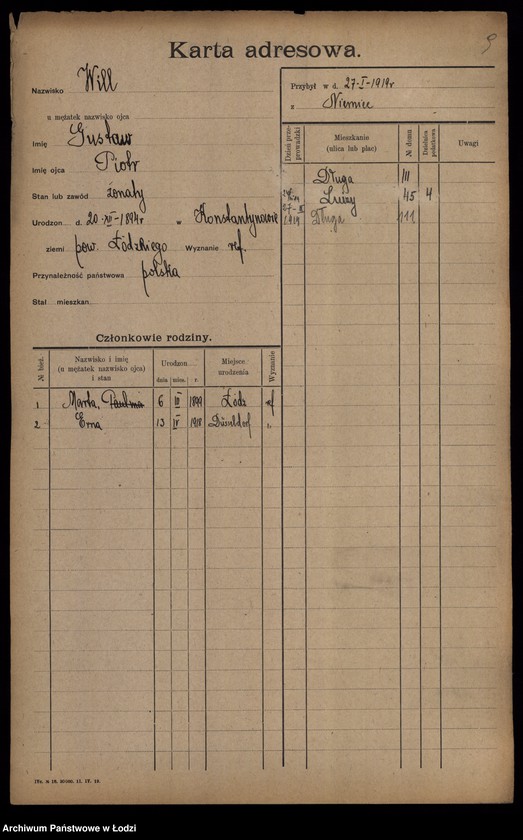 Karta adresowa.
9
Nazwisko Will
u mężatek nazwisko ojca
Imię Gustaw
Imię ojca Piotr
Stan lub zawód żonaty
Urodzon d. 20-XII-1894r w Konstantynowie
ziemi pow. Łódzkiego Wyznanie ref.
Przynależność państwowa polska
Stał mieszkan.
Przybył w d. 27-I-1919r
z Niemiec
Dzień przeprowadzki Mieszkanie (ulica lub plac) № domu Dzielnica podatkowa Uwagi
Długa 111
45 4
1919 Długa 111
Członkowie rodziny.
№ bież. Nazwisko i imię (u mężatek nazwisko ojca) i stan Urodzon dnia mies. r. Miejsce urodzenia Wyznanie
1 Marta, Paulina 6 III 1899 Łódź ref
2. Erna 13 IV 1918 Düseldorf "
Archiwum Państwowe w Łodzi